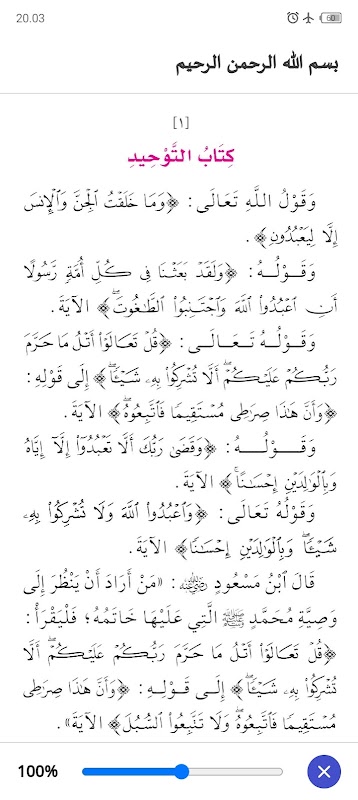 20.03
60
بسم الله الرحمن الرحيم
[١]
كِتَابُ التَّوْحِيدِ
وَقَوْلُ اللَّهِ تَعَالَى: ﴿وَمَا خَلَقْتُ ٱلْجِنَّ وَٱلْإِنسَ
إِلَّا لِيَعْبُدُونِ﴾.
وَقَـوْلُـهُ: ﴿وَلَقَدْ بَعَثْنَا فِي كُلِّ أُمَّةٍ رَّسُولًا
أَنِ ٱعْبُدُوا۟ ٱللَّهَ وَٱجْتَنِبُوا۟ ٱلطَّـٰغُوتَۖ﴾ الآيَةَ.
وَقَـوْلُـهُ تَـعَـالَـى: ﴿قُلْ تَعَالَوْا۟ أَتْلُ مَا حَرَّمَ
رَبُّكُمْ عَلَيْكُمْۖ أَلَّا تُشْرِكُوا۟ بِهِۦ شَيْـًٔاۖ﴾ إِلَى قَوْلِهِ:
﴿وَأَنَّ هَٰذَا صِرَٰطِى مُسْتَقِيمًا فَٱتَّبِعُوهُۖ﴾ الآيَةَ.
وَقَـــوْلُـــهُ: ﴿وَقَضَىٰ رَبُّكَ أَلَّا تَعْبُدُوٓا۟ إِلَّآ إِيَّاهُ
وَبِٱلْوَٰلِدَيْنِ إِحْسَـٰنًاۚ﴾ الآيَةَ.
وَقَوْلُهُ تَعَالَى: ﴿وَٱعْبُدُوا۟ ٱللَّهَ وَلَا تُشْرِكُوا۟ بِهِۦ
شَيْـًٔاۖ وَبِٱلْوَٰلِدَيْنِ إِحْسَـٰنًا﴾ الآيَةَ.
قَالَ ٱبْنُ مَسْعُودٍ رضي الله عنه: «مَنْ أَرَادَ أَنْ يَنْظُرَ إِلَى
وَصِيَّةِ مُحَمَّدٍ ﷺ الَّتِي عَلَيْهَا خَاتَمُهُ؛ فَلْيَقْرَأْ:
﴿قُلْ تَعَالَوْا۟ أَتْلُ مَا حَرَّمَ رَبُّكُمْ عَلَيْكُمْۖ أَلَّا
تُشْرِكُوا۟ بِهِۦ شَيْـًٔاۖ﴾ إِلَـى قَـوْلِـهِ: ﴿وَأَنَّ هَٰذَا صِرَٰطِى
مُسْتَقِيمًا فَٱتَّبِعُوهُۖ وَلَا تَتَّبِعُوا۟ ٱلسُّبُلَ﴾ الآيَةَ».
100%